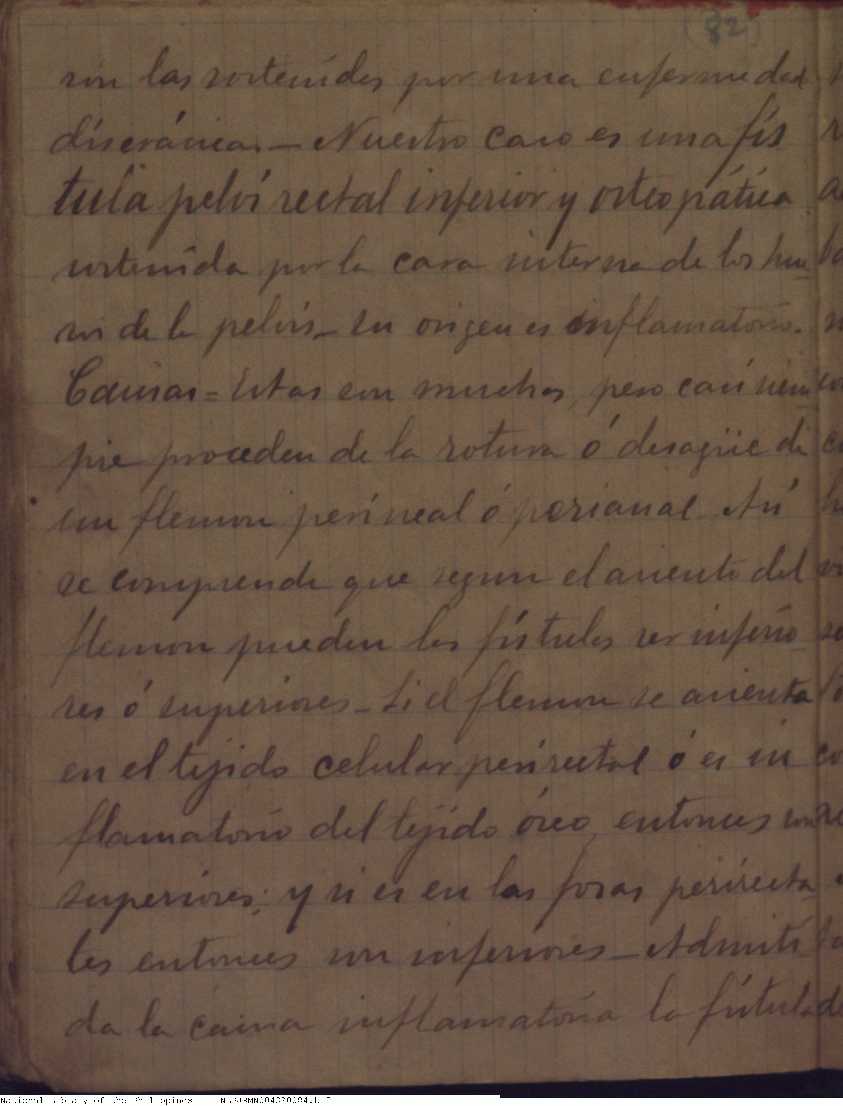 (82)
son las sostenidas por una enfermedad
discrásica. — Nuestro caso es una fís
tula pelvi rectal inferior y osteopática
sostenida por la cara interna de los hue
sos de la pelvis — Su origen es inflamatorio.
Causas = Estas son muchas, pero casi siem
pre proceden de la rotura ó desagüe de
un flemon perineal ó perianal. Así
se comprende que segun el asiento del
flemon pueden las fístulas ser inferio
res ó superiores — Si el flemon se asienta
en el tejido celular perirectal ó es in
flamatorio del tejido óseo, entonces son
superiores; y si es en las fosas perirecta
les entonces son inferiores — Admiti
da la causa inflamatoria la fístula
National Library of the Philippines